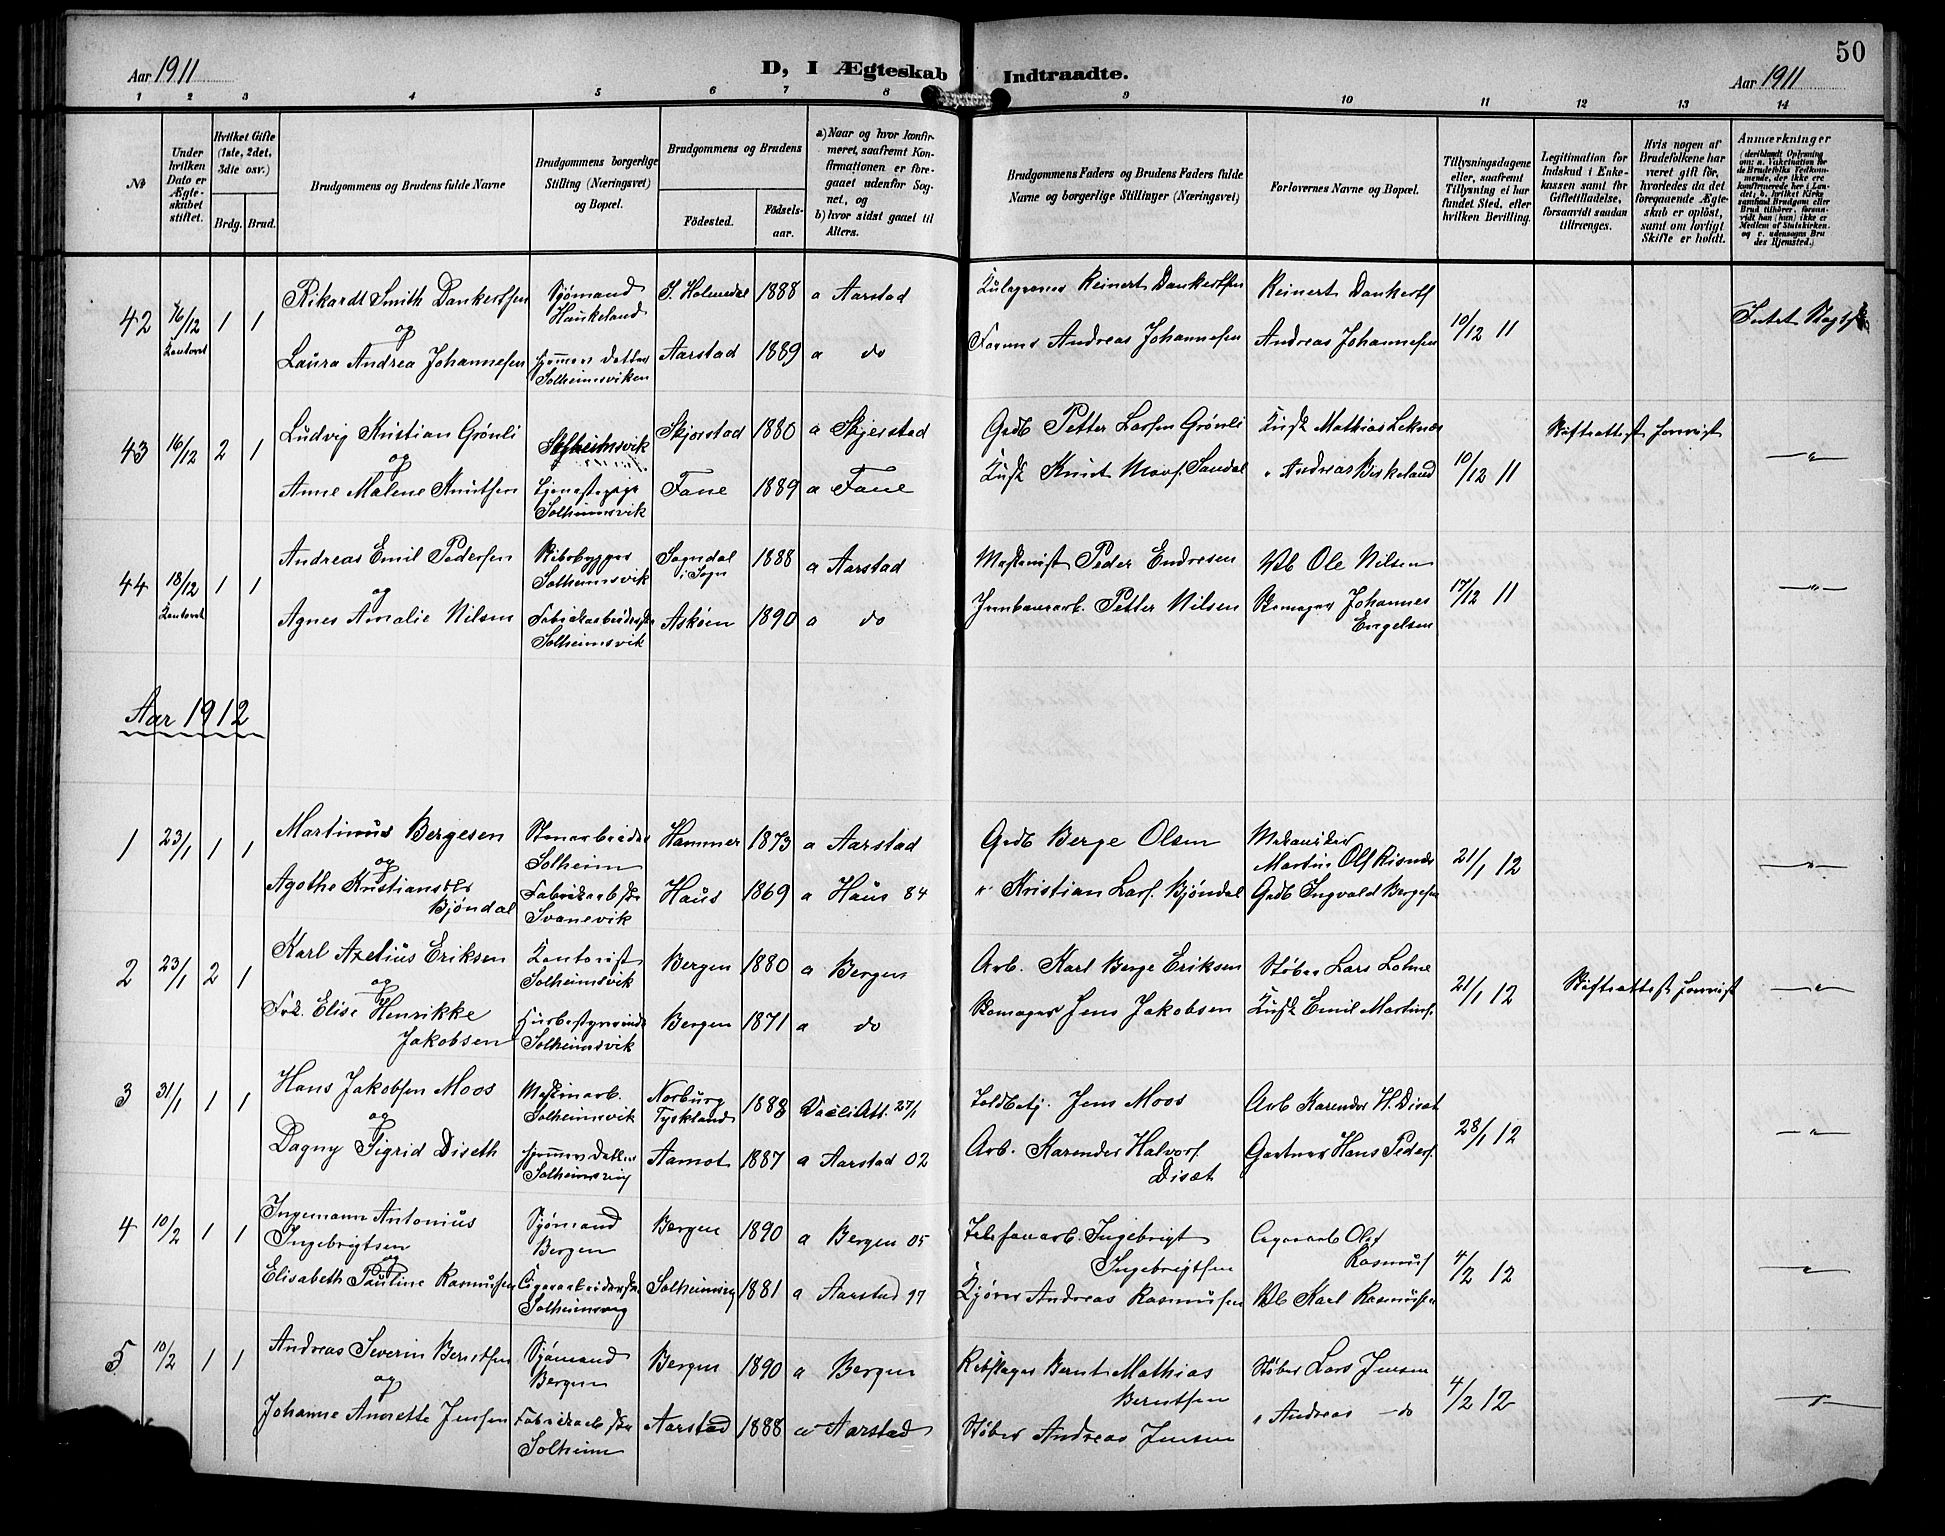 50
Aar 1911
D, I Ægteskab Indtraadte.
Aar 1911
1 2 3 4 5 6 7 8 9 10 11 12 13 14
№
Under hvilken Dato er Ægteskabet stiftet.
Hvilket Gifte (1ste, 2det, 3die osv.)
Brdg. Brud.
Brudgommens og Brudens fulde Navne
Brudgommens borgerlige Stilling (Næringsvei) og Bopæl.
Brudgommens og Brudens
Fødested.
Fødselsaar.
a) Naar og hvor konfirmeret, saafremt Konfirmationen er foregaaet udenfor Sognet, og
b) hvor sidst gaaet til Alters.
Brudgommens Faders og Brudens Faders fulde Navne og borgerlige Stillinger (Næringsvei)
Forlovernes Navne og Bopæl.
Tillysningsdagene eller, saafremt Tillysning ei har fundet Sted, efter hvilken Bevilling.
Legitimation for Indskud i Enkekassen samt for Giftetilladelse, forsaavidt saadan tiltrænges.
Hvis nogen af Brudefolkene har været gift før, hvorledes da det foregaaende Ægteskab er opløst, samt om lovligt Skifte er holdt.
Anmærkninger
(deriblandt Oplysning om: a. Vakcination for de Brudefolks Vedkommende, der ikke ere konfirmerede her i Landet; b. hvilket Kirkesamfund Brudgom eller Brud tilhører, forsaavidt han (hun) ikke er Medlem af Statskirken. og c. udensogns Brudes Hjemsted.)
42 16/12 1 1 Rikardt Smith Dankertsen Sjømand Haukeland 1888 a Aarstad Reinert Dankertsen Reinert Dankerts 10/12 11 Intet
og
Laura Andrea Johannesen Solheimsviken Aarstad 1889 a do Andreas Johannesen Andreas Johannesen
43 16/12 2 1 Ludvig Kristian Grønli Solheimsvik Skjerstad 1880 a Skjerstad Grdb Petter Larsen Grønli Mathias Leknæs 10/12 11 Skifteattest forevist „
og
Anne Malene Knutsen Tjenestepige Solheimsvik Fane 1889 a Fane Knut Sandal „ Andreas Birkeland
44 18/12 1 1 Andreas Emil Pedersen Solheimsvik Sogndal i Sogn 1888 a Aarstad Maskinist Peder Endresen Ole Nilsen 17/12 11 „
og
Agnes Amalie Nilsen Fabrikarbeiderske Solheimsvik Askøen 1890 a do Petter Nilsen Skomager Johannes Engelsen
Aar 1912
1 23/1 1 1 Martinus Bergesen Stenarbeider Solheim Hammer 1873 a Aarstad Grdb Berge Olsen Mekaniker 21/1 12 „
og
Agothe Kristiansdtr Bjøndal Svanevik Haus 1869 a Haus 84 „ Kristian Lars. Bjøndal Grdb Ingvald Bergesen
2 23/1 2 1 Karl Axelius Eriksen Kontorist Solheimsvik Bergen 1880 a Bergen Arb. Karl Berge Eriksen Støber Lars 21/1 12 Skifteattest forevist „
og
Frk. Elise Henrikke Jakobsen Husbestyrerinde Solheimsvik Bergen 1871 a do Skomager Jens Jakobsen Emil Martins.
3 31/1 1 1 Hans Jakobsen Moos Maskinarb. Solheimsvik Norburg Tyskland 1888 27/1 Toldbetj. Jens Moos Arb Karender H. Disæt 28/1 12 „
og
Dagny Sigrid Diseth Solheimsvig Aamot 1887 a Aarstad 02 Arb. Karender Halvors Disæt Gartner Hans Peders.
4 10/2 1 1 Ingemann Antonius Ingebrigtsen Sjømand Bergen Bergen 1890 a Bergen 05 Telefonarb. Ingebrigt Ingebrigtsen Cigararb Olaf Rasmus 4/2 12 „
og
Elisabeth Pauline Rasmussen Cigararbeiderske Solheimsvig Solheimsvig 1881 a Aarstad 97 Kjører Andreas Rasmussen Karl Rasmussen
5 10/2 1 1 Andreas Severin Berntsen Sjømand Bergen Bergen 1890 a Bergen Rebslager Bernt Mathias Berntsen Støber Lars Jensen 4/2 12 „
og
Johanne Annette Jensen Solheim Aarstad 1888 a Aarstad Støber Andreas Jensen „ Andreas do